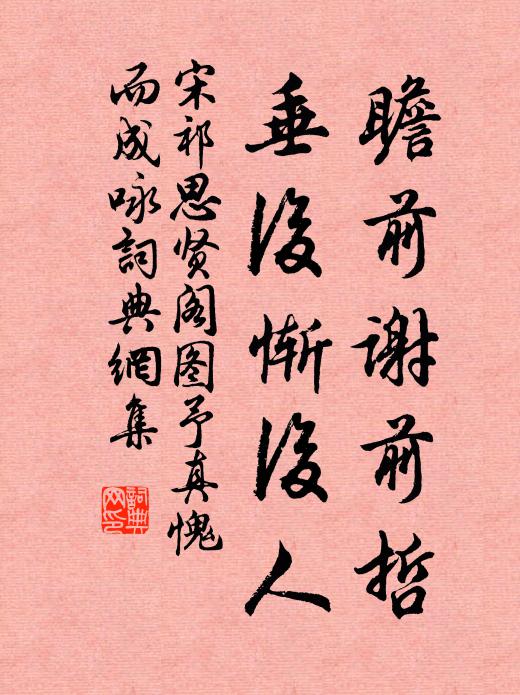 瞻前谢前哲
垂後惭後人
宋祁思贤阁图予真愧
而成咏詞典網集
詞典网印